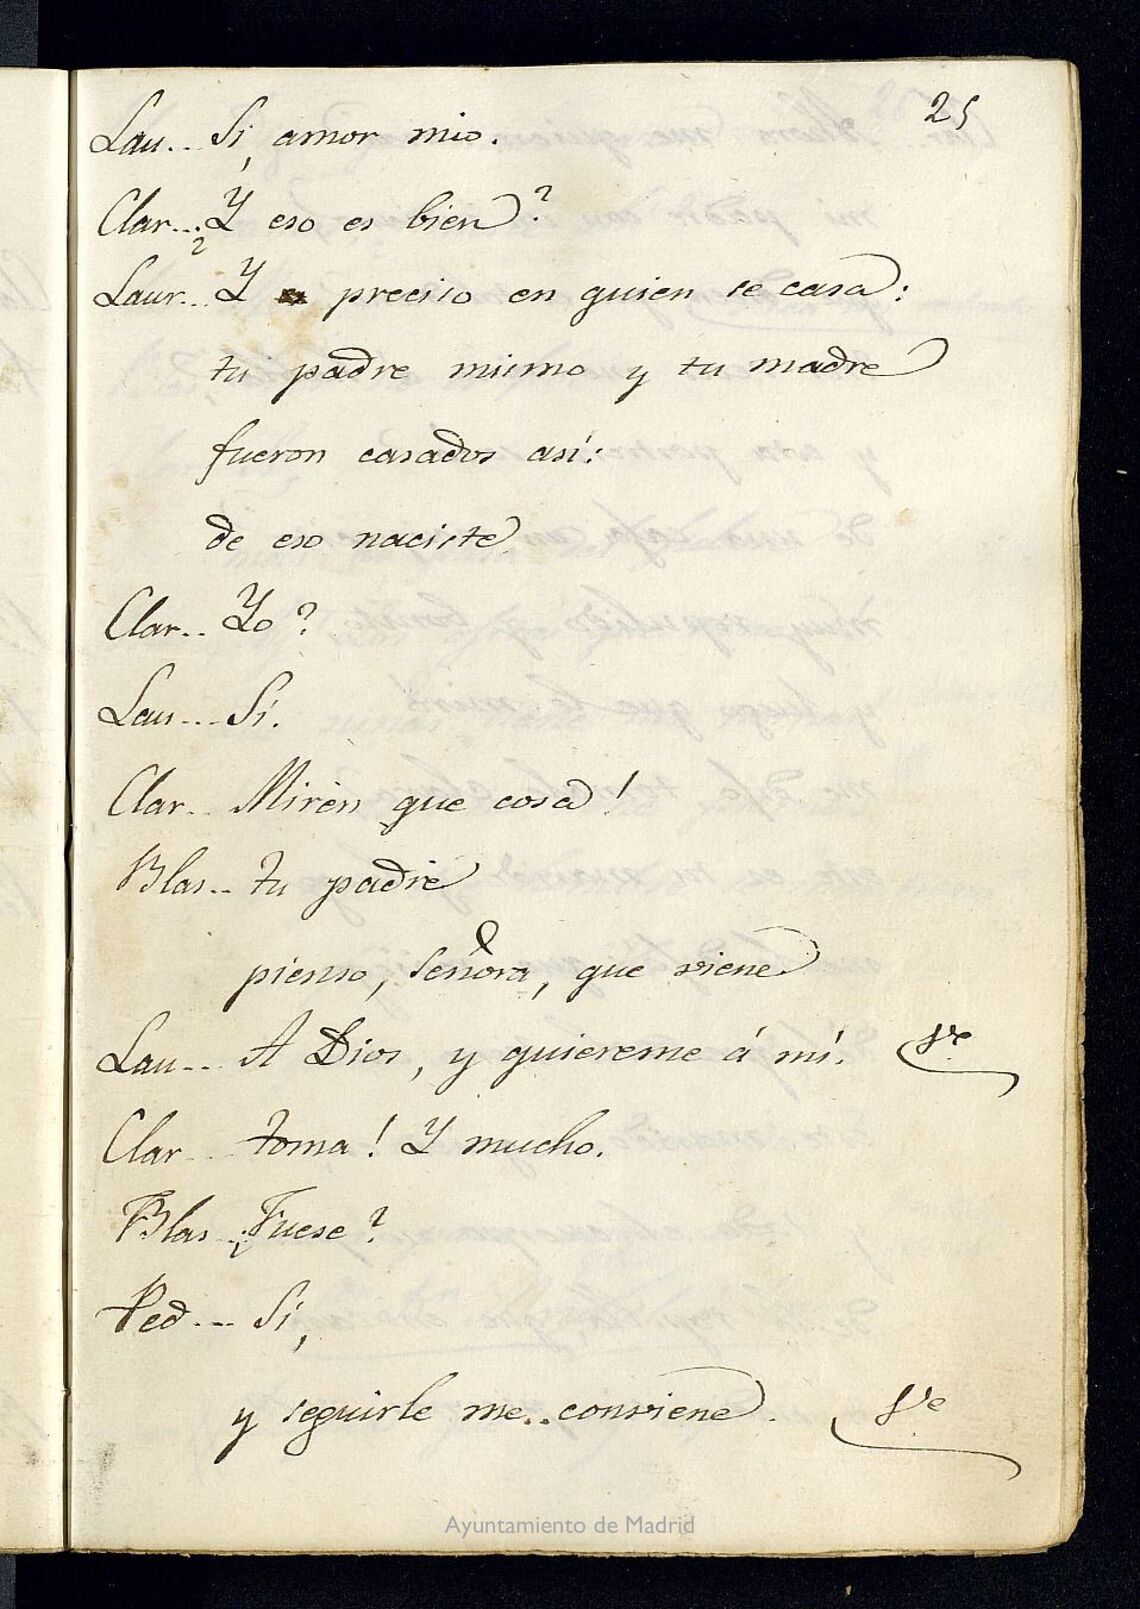 25
Lau.. Si, amor mio.
Clar... ¿Y eso es bien?
Laur.. Y es preciso en quien se casa:
tu padre mismo y tu madre
fueron casados así:
de eso naciste
Clar.. Yo?
Lau... Sí.
Clar.. Miren que cosa!
Blas.. tu padre
pienso, señora, que viene
Lau... A Dios, y quiereme á mí. Ve
Clar... toma! Y mucho.
Blas.. ¿Fuese?
Ped... Si,
y seguirle me..conviene. Ve
Ayuntamiento de Madrid